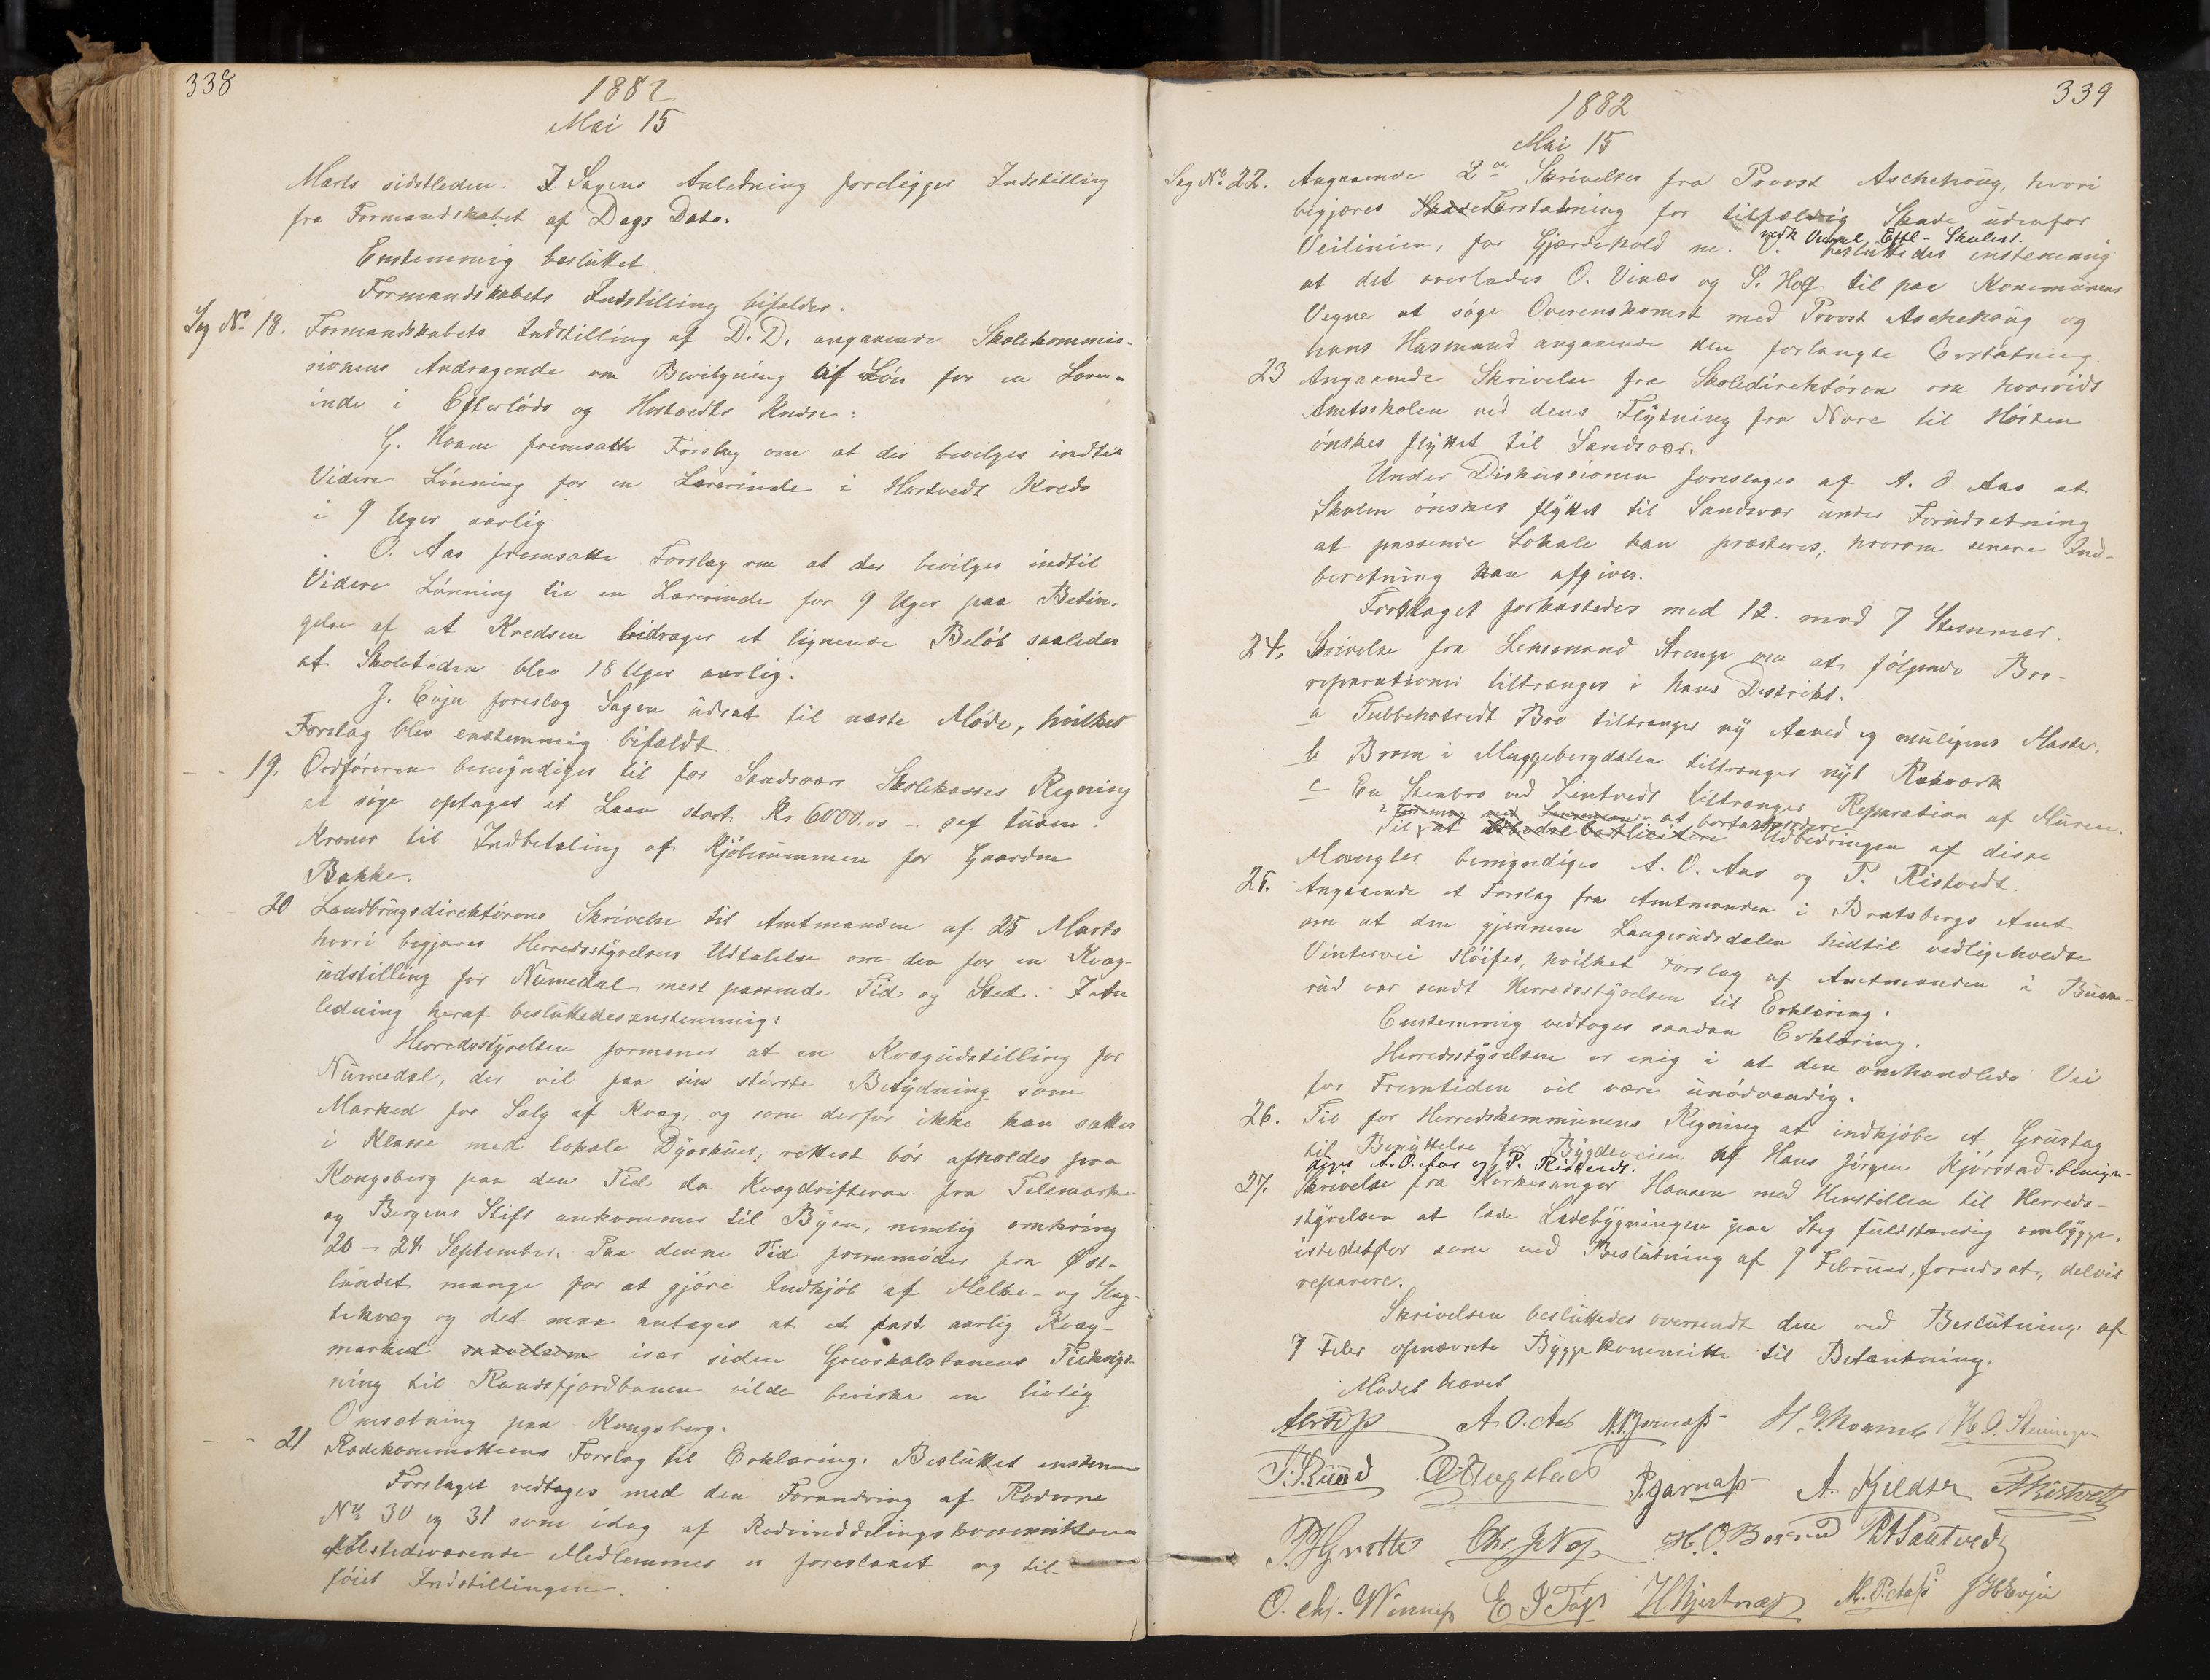 338
1882
Mai 15
Marts sidstleden. I Sagens Anledning foreligger Indstilling
fra Formandskabet af Dags Dato.
Enstemmig besluttet.
Formandskabets Indstilling bifaldes.
Sag No. 18. Formandskabets Indstilling af D.D. angaaende Skolekommis-
sionens Andragende om Bevilgning til Løn for en Lærer-
inde i Efterløds og Hostvedts Kredse:
G. Hvam fremsatte Forslag om at der bevilges indtil
Videre Lønning for en Lærerinde i Hostvedt Kreds
i 9 Uger aarlig.
O. Aas fremsatte Forslag om at der bevilges indtil
Videre Lønning til en Lærerinde for 9 Uger paa Betin-
gelse af at Kredsen bidrager et lignende Beløb saaledes
at Skoletiden blev 18 Uger aarlig.
J. Evju foreslog Sagen udsat til næste Møde, hvilket
Forslag blev enstemmig bifaldt.
19. Ordføreren bemyndiges til for Sandsværs Skolekasses Regning
at søge optaget et Laan stort Kr 6000.00 - sex tusen
Kroner til Indbetaling af Kjøbesummen for Gaarden
Bakke.
20 Landbrugsdirektørens Skrivelse til Amtmanden af 25 Marts
hvori begjæres Herredsstyrelsens Udtalelse om den for en Kvæg-
udstilling for Numedal mest passende Tid og Sted. I An
ledning heraf besluttedes enstemmig:
Herredsstyrelsen formener at en Kvægudstilling for
Numedal, der vil faa sin største Betydning som
Marked for Salg af Kvæg, og som derfor ikke kan sættes
i Klasse med lokale Dyrskuer, rettest bør afholdes paa
Kongsberg paa den Tid da Kvægdrifterne fra Telemarken
og Bergens Stift ankommer til Byen, nemlig omkring
20 - 24 September. Paa denne Tid fremmøder fra Øst-
landet mange for at gjøre Indkjøb af Melke- og Slag-
tekvæg og det maa antages at et fast aarlig Kvæg-
marked saavelsom især siden Grevskabsbanens Tilknyt-
ning til Randsfjordbanen vilde bevirke en livlig
Omsætning paa Kongsberg.
21 Rodekommitteens Forslag til Erklæring. Besluttet enstem
Forslaget vedtages med den Forandring af Roderne
No 30 og 31 som idag af Rodeinddelingskommitteens
tilstedeværende Medlemmer er foreslaaet og til-
føiet Indstillingen.
339
1882
Mai 15
Sag No. 22. Angaaende 2de Skrivelser fra Provst Aschehoug, hvori
begjæres Skade Erstatning for tilfældig Skade udenfor
Veilinien, for Gjærdehold m. V. besluttedes enstemmig
at det overlades O. Vinæs og S. Hof til paa Kommunens
Vegne at søge Overenskomst med Provst Aschehoug og
hans Husmand angaaende den forlangte Erstatning.
23 Angaaende Skrivelse fra Skoledirektøren om hvorvidt
Amtsskolen ved dens Flytning fra Nore til Høsten
ønskes flyttet til Sandsvær.
Under Diskussionen foresloges af A. O. Aas at
Skolen ønskes flyttet til Sandsvær under Forudsætning
at passende Lokale kan præsteres, hvorom senere Ind-
beretning kan afgives.
Forslaget forkastedes med 12. mod 7 Stemmer.
24. Skrivelse fra Lensmand Strenge om at følgende Bro-
reparationer tiltrænges i hans Distrikt.
a Tubbehotvedt Bro tiltrænger ny Aaved og muligens Master.
b Broen i Muggebergdalen tiltrænger nyt Rækværk
c En Stenbro ved Lintvedt tiltrænger Reparation af Muren.
at bortakkordere
Til at Udbedringen af disse
Mangler bemyndiges A. O. Aas og P. Ristvedt.
25. Angaaende et Forslag fra Amtmanden i Bratsbergs Amt
om at den gjennem Langerudsdalen hidtil vedligeholdte
Vintervei sløifes, hvilket Forslag af Amtmanden i Buske-
rud var sendt Herredsstyrelsen til Erklæring.
Enstemmig vedtoges saadan Erklæring.
Herredsstyrelsen er enig i at den omhandlede Vei
for Fremtiden vil være unødvendig.
26. Til for Herredskommunens Regning at indkjøbe et Grustag
til Benyttelse for Bygdeveien af Hans Jørgen Kjørstad bemyn-
diges A. O. Aas og P. Ristvedt.
27. Skrivelse fra Kirkesanger Hansen med Henstillen til Herreds-
styrelsen at lade Ladebygningen paa Steg fuldstændig ombygge,
istedetfor som ved Beslutning af 9 Februar, forudsat, delvis
reparere.
Skrivelsen besluttedes oversendt den ved Beslutning af
9 Febr opnævnte Byggekommitte til Betænkning.
Mødet hævet
A. O. Aas
T. Ruud
A. Kjeldsen
P Ristvedt
P. Grotte